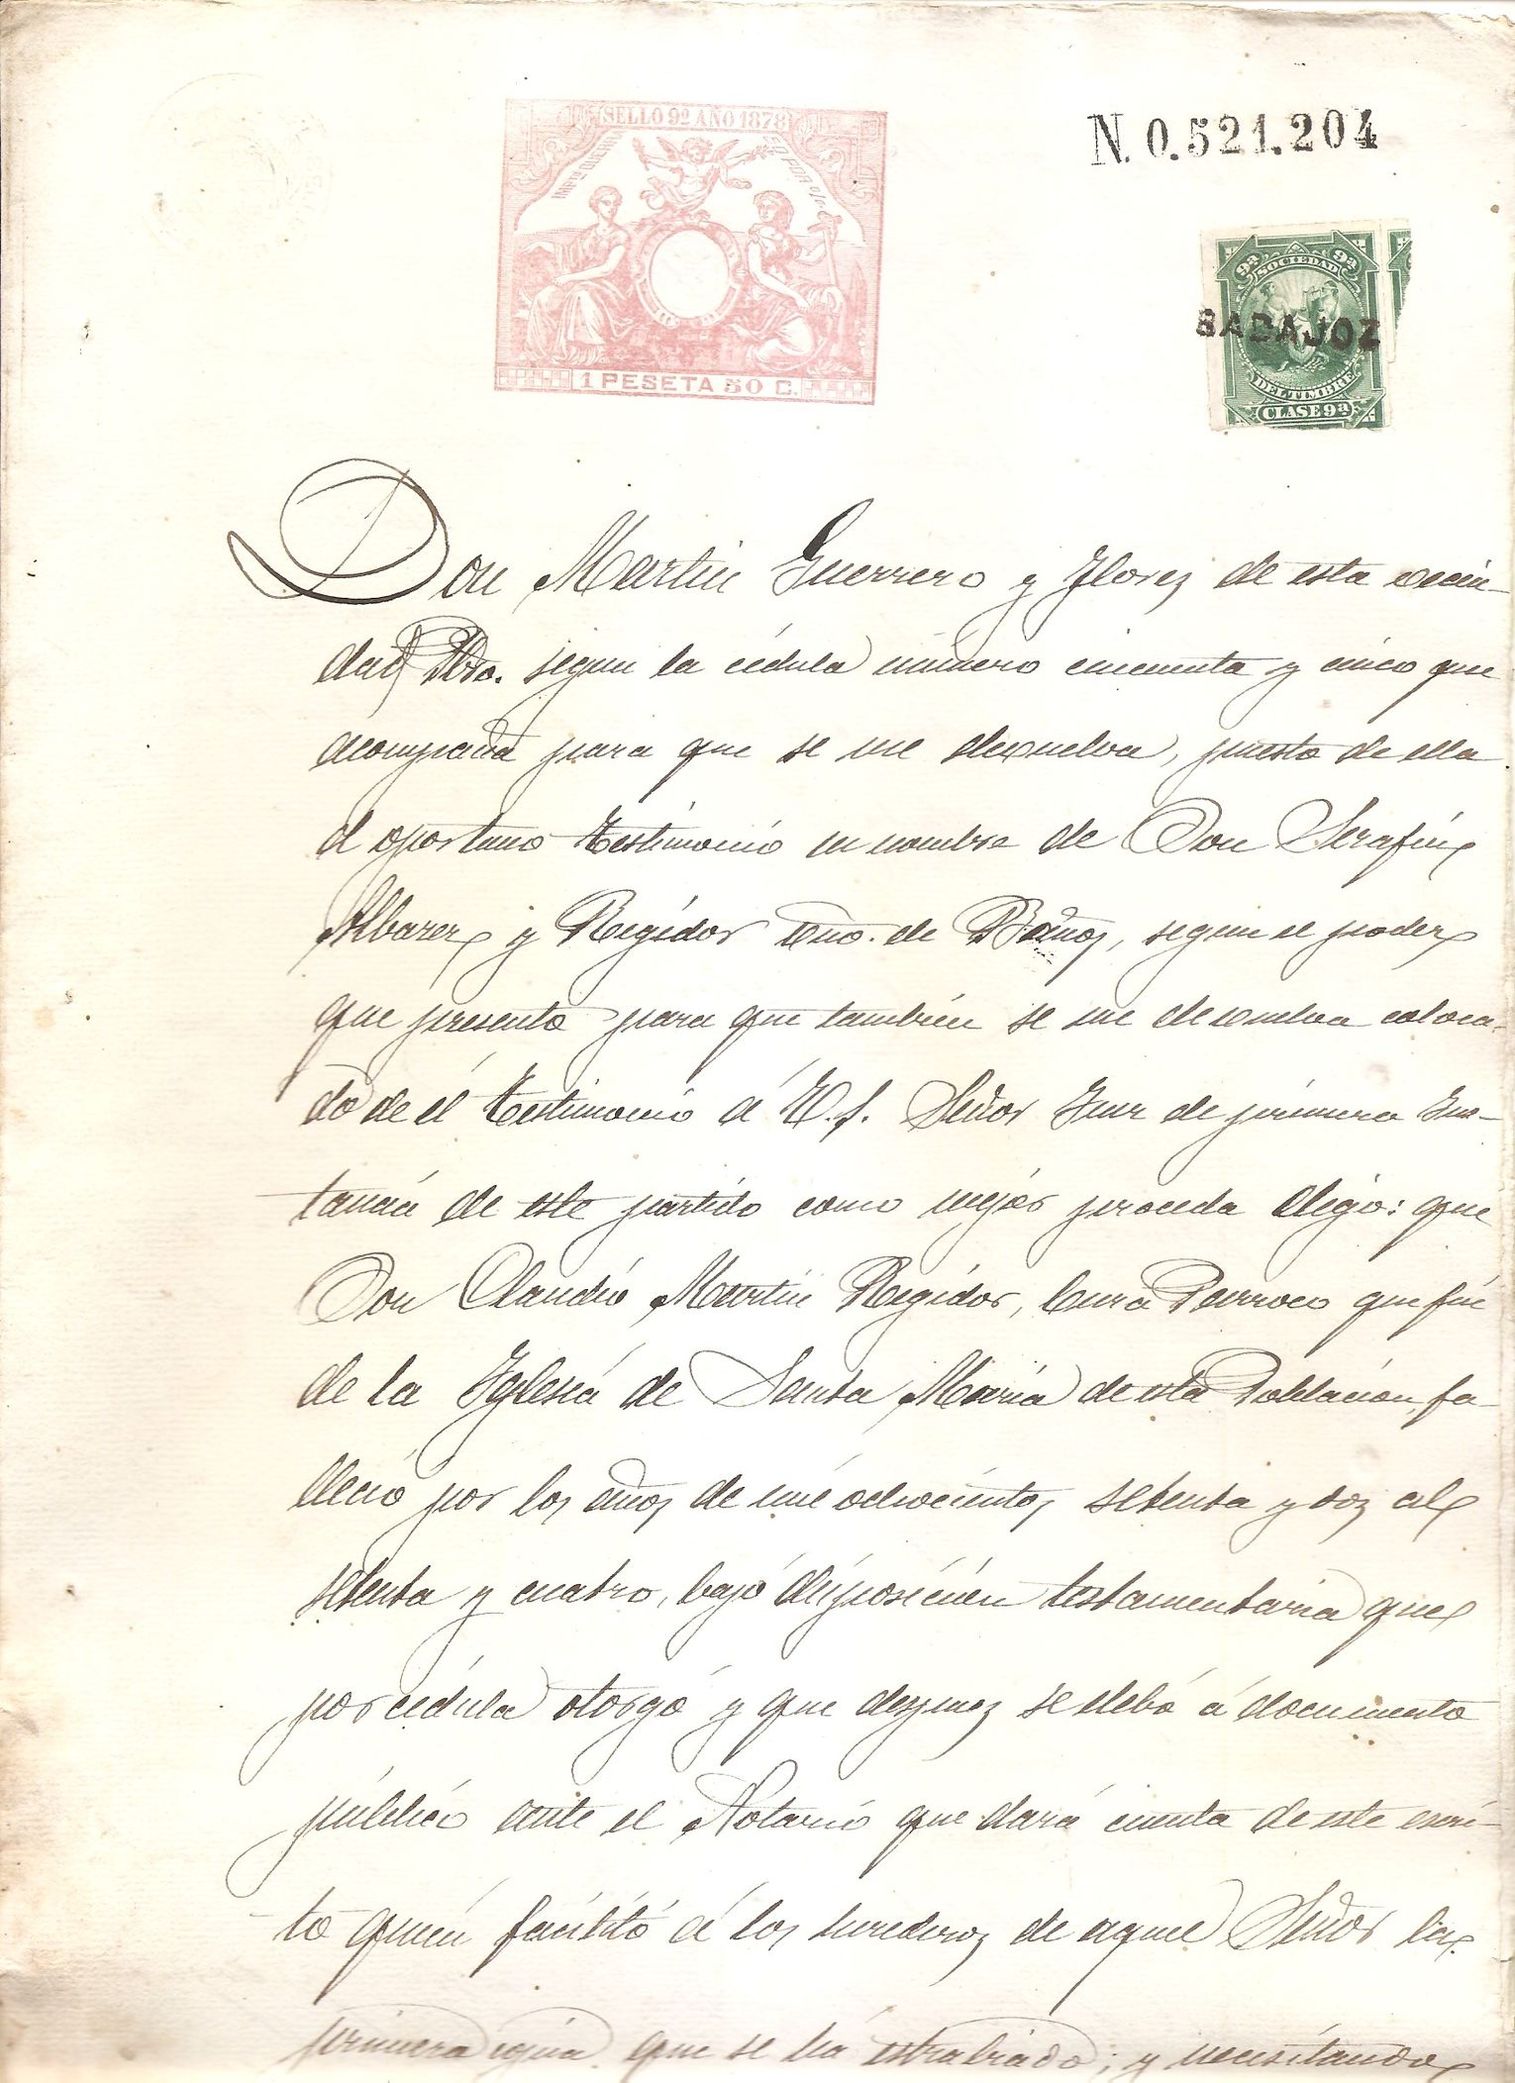 SELLO 9º AÑO 1878
N. 0.521.204
9ª SOCIEDAD 9ª
BADAJOZ
DEL TIMBRE
CLASE 9ª
1 PESETA 50 C.
Don Martin Guerrero y Florez de esta vecin-
dad Pbro. segun la cédula número cincuenta y cinco que
acompaña para que se me devuelva, puesto de ella
el oportuno testimonio en nombre de Don Serafin
Albarez y Regidor vno. de Baños, segun el poder
que presento para que tambien se me devuelva coloca-
do de él testimonio á V. S. Señor Juez de primera Ins-
tancia de este partido como mejor proceda digo: que
Don Claudio Martin Regidor, Cura Parroco que fué
de la Iglesia de Santa Maria de esta Poblacion, fa-
lleció por los años de mil ochocientos setenta y doz al
setenta y cuatro, bajo disposicion testamentaria que
por cédula otorgó y que despuez se elebó á documento
público ante el Notario que dará cuenta de este escri-
to quien facilitó á los herederoz de aquel Señor la
primera copia que se ha estrabiado; y necesitando